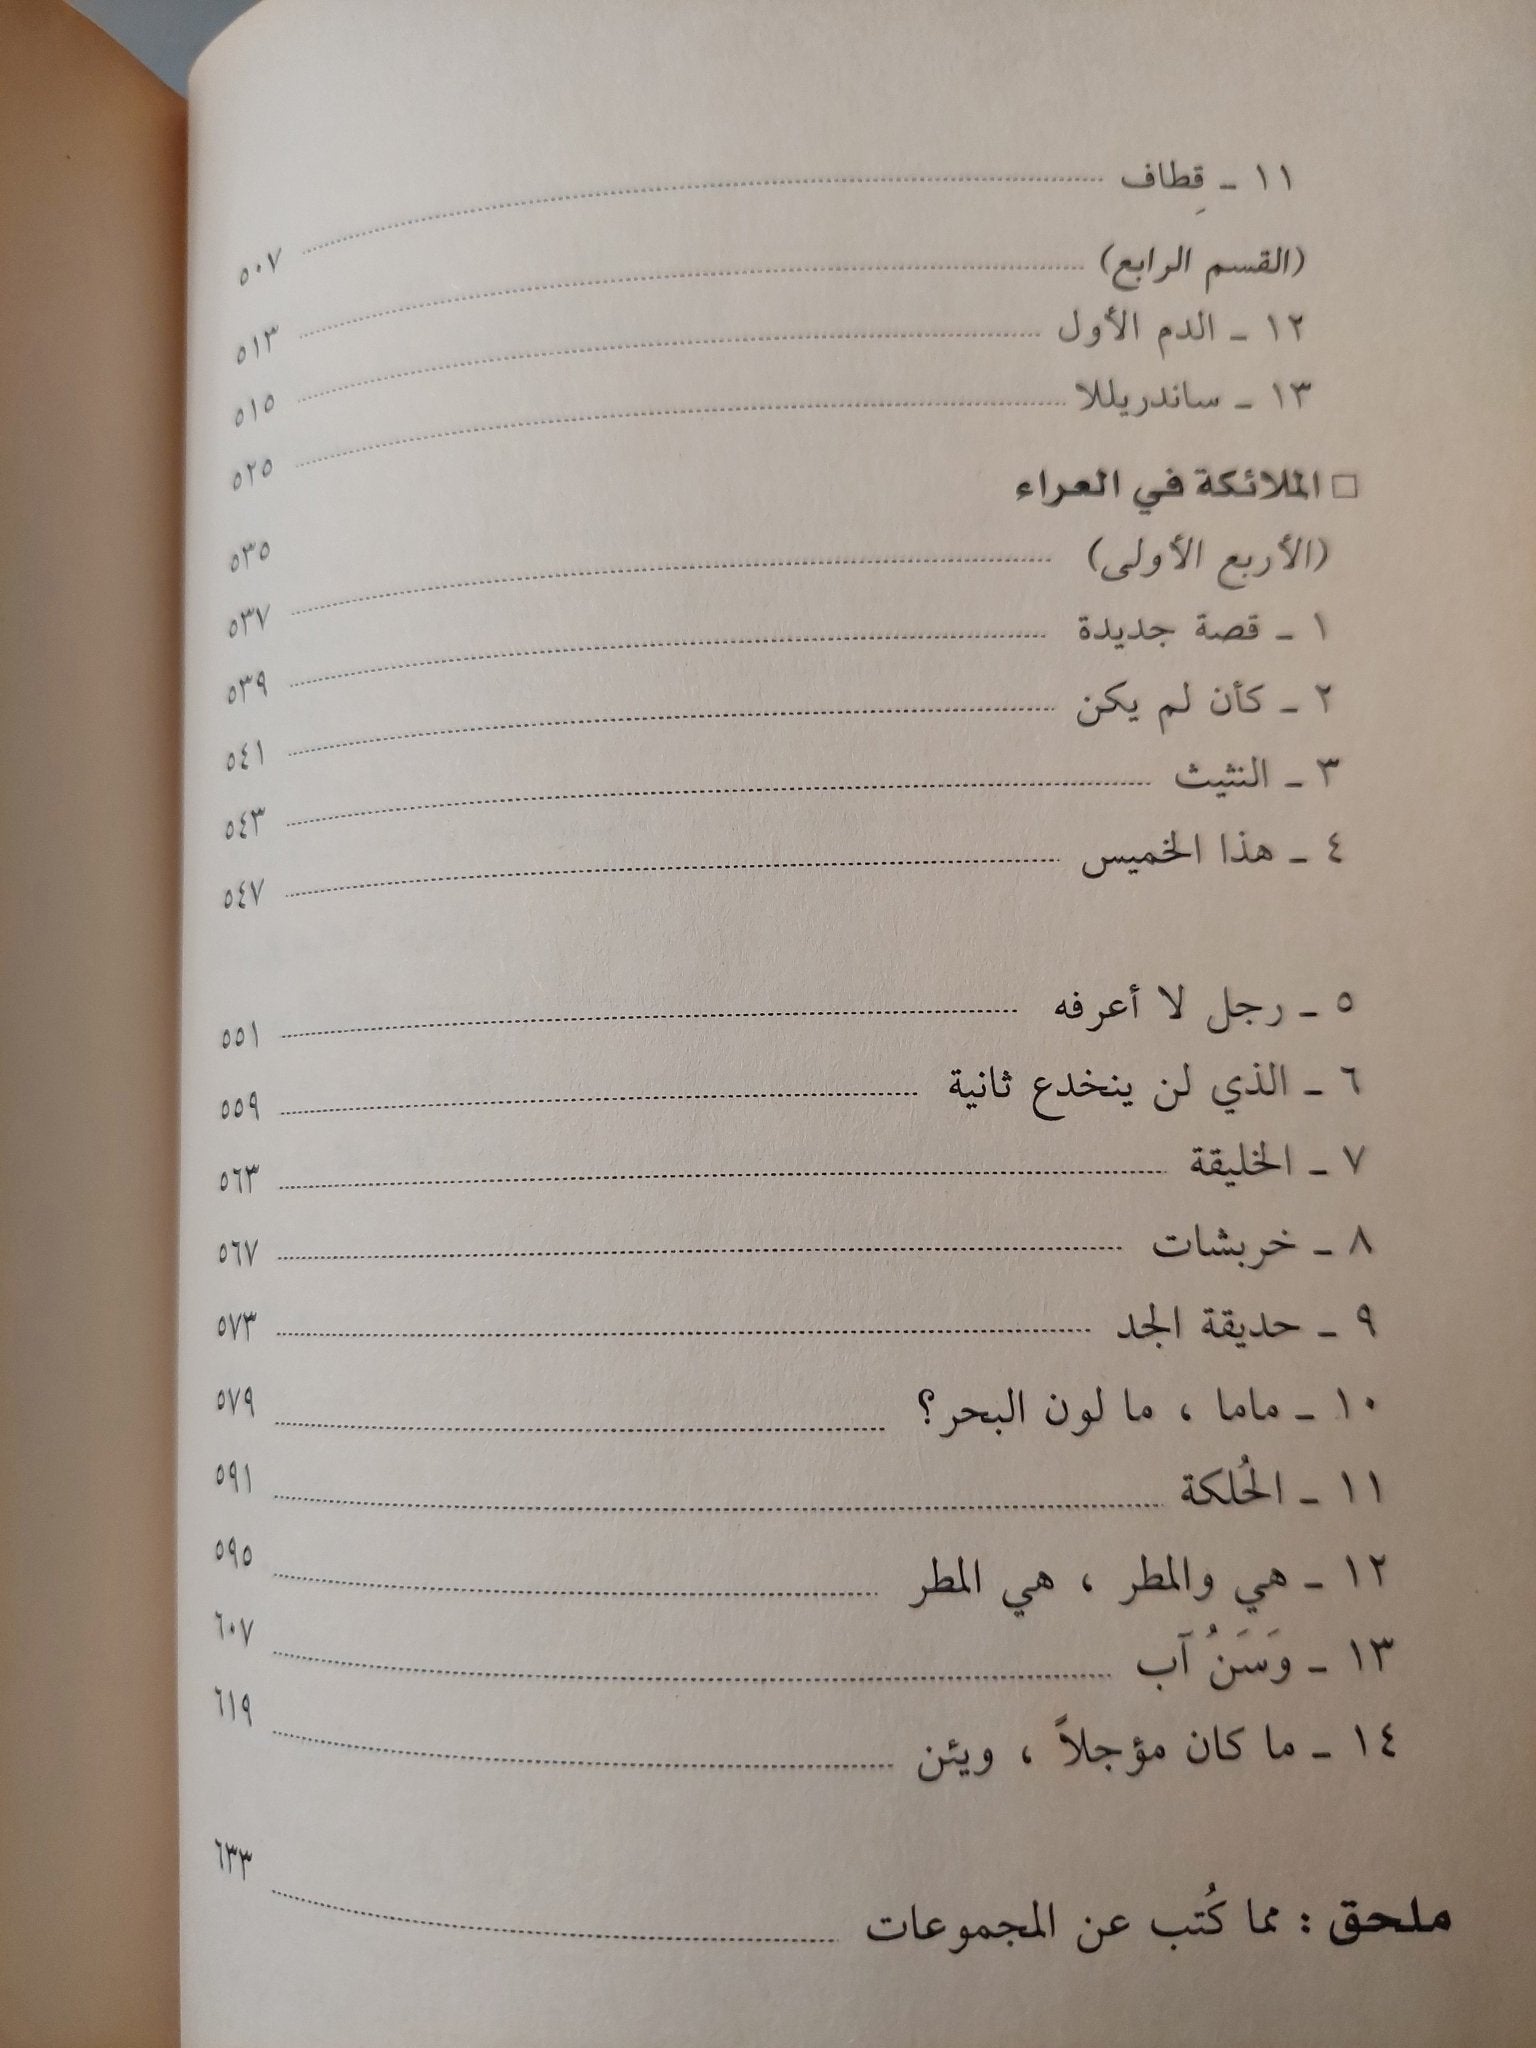 ١١ ـ قِطاف ........ ٥٠٧
(القسم الرابع) ........ ٥١٣
١٢ ـ الدم الأول ........ ٥١٥
١٣ ـ ساندريللا ........ ٥٢٥
□ الملائكة في العراء ٥٣٥
(الأربع الأولى) ........ ٥٣٧
١ ـ قصة جديدة ........ ٥٣٩
٢ ـ كأن لم يكن ........ ٥٤١
٣ ـ النثيث ........ ٥٤٣
٤ ـ هذا الخميس ........ ٥٤٧
٥ ـ رجل لا أعرفه ........ ٥٥١
٦ ـ الذي لن ينخدع ثانية ........ ٥٥٩
٧ ـ الخليقة ........ ٥٦٣
٨ ـ خربشات ........ ٥٦٧
٩ ـ حديقة الجد ........ ٥٧٣
١٠ ـ ماما ، ما لون البحر؟ ........ ٥٧٩
١١ ـ الحُلكة ........ ٥٩١
١٢ ـ هي والمطر ، هي المطر ........ ٥٩٥
١٣ ـ وَسَنُ آب ........ ٦٠٧
١٤ ـ ما كان مؤجلاً ، ويئن ........ ٦١٩
ملحق : مما كُتب عن المجموعات ........ ٦٣٣